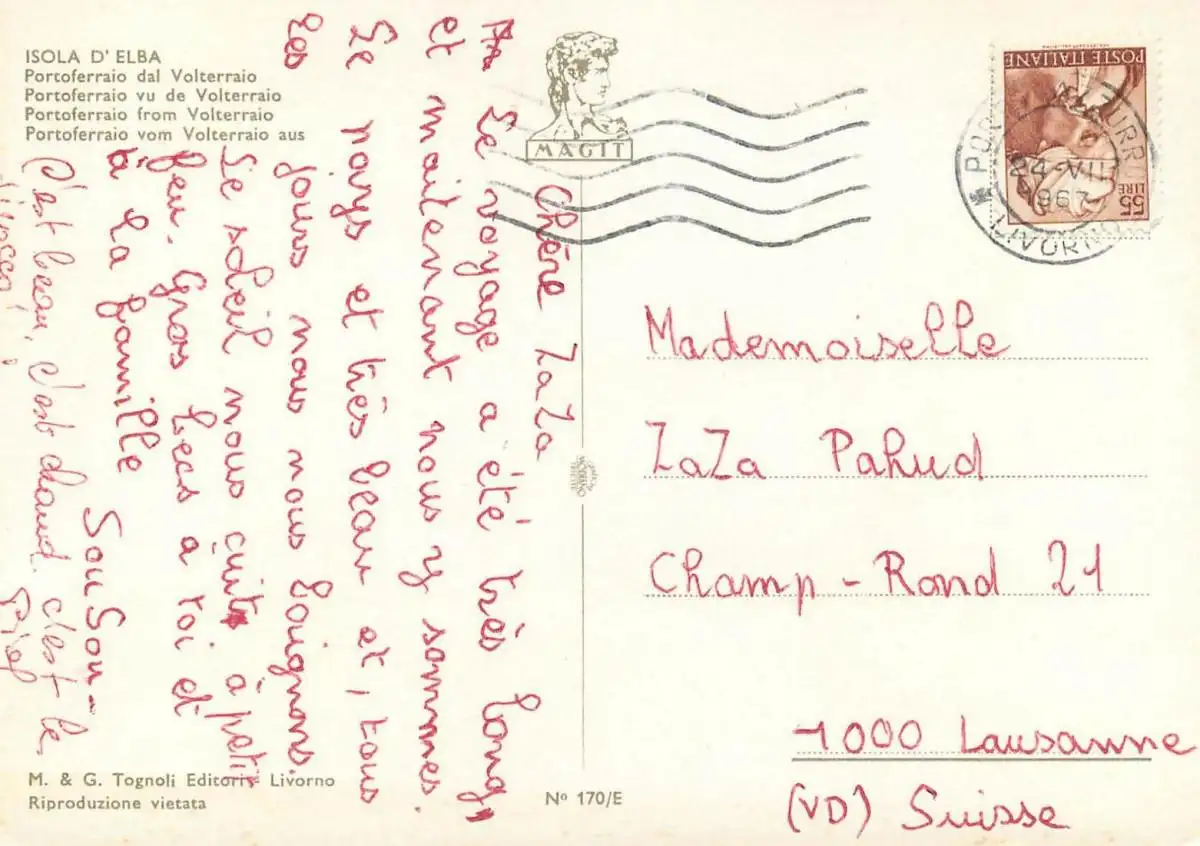 ISOLA D' ELBA
Portoferraio dal Volterraio
Portoferraio vu de Volterraio
Portoferraio from Volterraio
Portoferraio vom Volterraio aus
MAGIT
POSTE ITALIANE
55
LIRE
24-VII
1967
LIVORNO
Chère ZaZa
Le voyage a été très long,
et maitenant nous y sommes.
Le nays et très beau et, tous
les jours nous nous baignons.
Le soleil nous cuit à petit
feu. Gros becs à toi et
à la famille
SouSou-
C'est beau, c'est chaud. c'est le
Mademoiselle
ZaZa Pahud
Champ-Rond 21
1000 Lausanne
(VD) Suisse
M. & G. Tognoli Editori - Livorno
Riproduzione vietata
Nº 170/E